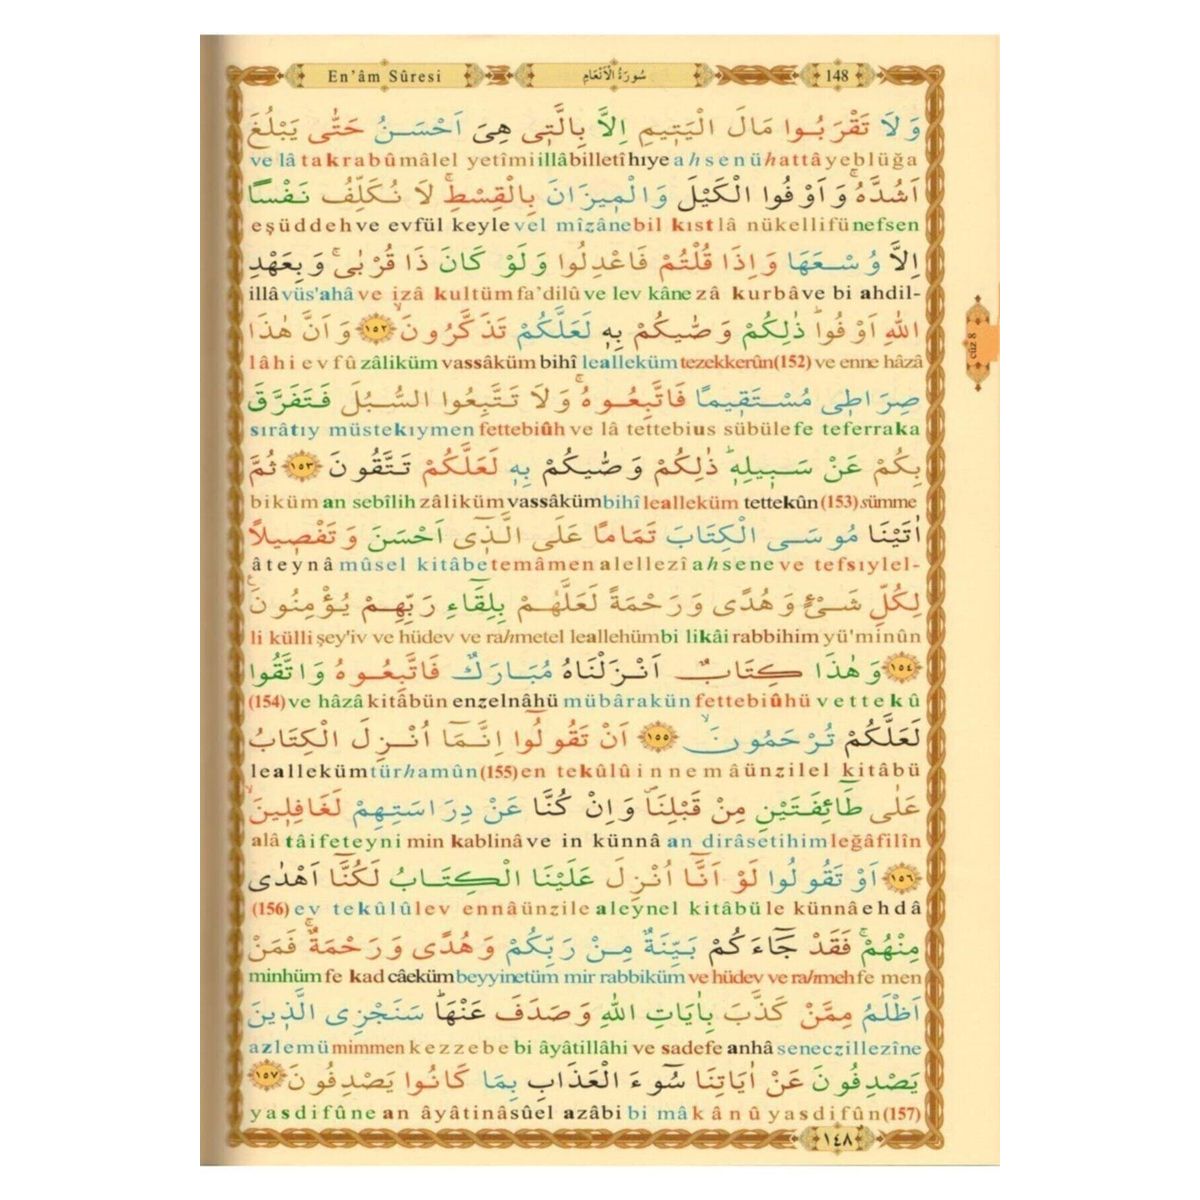 En'âm Sûresi
سُورَةُ الْاَنْعَامِ
148
وَلَا تَقْرَبُوا مَالَ الْيَتٖيمِ اِلَّا بِالَّتٖى هِىَ اَحْسَنُ حَتّٰى يَبْلُغَ
ve lâ takrabû mâlel yetîmi illâ billetî hiye ahsenü hattâ yeblüğa
اَشُدَّهُ ۚ وَاَوْفُوا الْكَيْلَ وَالْمٖيزَانَ بِالْقِسْطِ ۚ لَا نُكَلِّفُ نَفْسًا
eşüddeh ve evfül keyle vel mîzâne bil kıst lâ nükellifü nefsen
اِلَّا وُسْعَهَا وَاِذَا قُلْتُمْ فَاعْدِلُوا وَلَوْ كَانَ ذَا قُرْبٰى ۚ وَبِعَهْدِ
illâ vüs'ahâ ve izâ kultüm fa'dilû ve lev kâne zâ kurbâ ve bi ahdil-
اللّٰهِ اَوْفُوا ۜ ذٰلِكُمْ وَصّٰيكُمْ بِهٖ لَعَلَّكُمْ تَذَكَّرُونَ ۙ ﴿١٥٢﴾ وَاَنَّ هٰذَا
lâhi evfû zâliküm vassâküm bihî lealleküm tezekkerûn(152) ve enne hâzâ
صِرَاطٖى مُسْتَقٖيمًا فَاتَّبِعُوهُ ۚ وَلَا تَتَّبِعُوا السُّبُلَ فَتَفَرَّقَ
sırâtıy müstekıymen fettebiûh ve lâ tettebius sübüle fe teferraka
بِكُمْ عَنْ سَبٖيلِهٖ ۜ ذٰلِكُمْ وَصّٰيكُمْ بِهٖ لَعَلَّكُمْ تَتَّقُونَ ﴿١٥٣﴾ ثُمَّ
biküm an sebîlih zâliküm vassâküm bihî lealleküm tettekûn (153) sümme
اٰتَيْنَا مُوسَى الْكِتَابَ تَمَامًا عَلَى الَّذٖٓى اَحْسَنَ وَتَفْصٖيلًا
âteynâ mûsel kitâbe temâmen alellezî ahsene ve tefsıylel-
لِكُلِّ شَىْءٍ وَهُدًى وَرَحْمَةً لَعَلَّهُمْ بِلِقَٓاءِ رَبِّهِمْ يُؤْمِنُونَ
li külli şey'iv ve hüdev ve rahmetel leallehüm bi likâi rabbihim yü'minûn
﴿١٥٤﴾ وَهٰذَا كِتَابٌ اَنْزَلْنَاهُ مُبَارَكٌ فَاتَّبِعُوهُ وَاتَّقُوا
(154) ve hâzâ kitâbün enzelnâhü mübârakün fettebiûhü vettekû
لَعَلَّكُمْ تُرْحَمُونَ ۙ ﴿١٥٥﴾ اَنْ تَقُولُٓوا اِنَّمَٓا اُنْزِلَ الْكِتَابُ
lealleküm türhamûn (155) en tekûlû innemâ ünzilel kitâbü
عَلٰى طَٓائِفَتَيْنِ مِنْ قَبْلِنَا ۖ وَاِنْ كُنَّا عَنْ دِرَاسَتِهِمْ لَغَافِلٖينَ ۙ
alâ tâifeteyni min kablinâ ve in künnâ an dirâsetihim leğâfilîn
﴿١٥٦﴾ اَوْ تَقُولُوا لَوْ اَنَّٓا اُنْزِلَ عَلَيْنَا الْكِتَابُ لَكُنَّٓا اَهْدٰى
(156) ev tekûlû lev ennâ ünzile aleynel kitâbü le künnâ ehdâ
مِنْهُمْ ۚ فَقَدْ جَٓاءَكُمْ بَيِّنَةٌ مِنْ رَبِّكُمْ وَهُدًى وَرَحْمَةٌ ۚ فَمَنْ
minhüm fe kad câeküm beyyinetüm mir rabbiküm ve hüdev ve rahmeh fe men
اَظْلَمُ مِمَّنْ كَذَّبَ بِاٰيَاتِ اللّٰهِ وَصَدَفَ عَنْهَا ۜ سَنَجْزِى الَّذٖينَ
azlemü mimmen kezzebe bi âyâtillâhi ve sadefe anhâ seneczillezîne
يَصْدِفُونَ عَنْ اٰيَاتِنَا سُٓوءَ الْعَذَابِ بِمَا كَانُوا يَصْدِفُونَ ﴿١٥٧﴾
yasdifûne an âyâtinâ sûel azâbi bi mâ kânû yasdifûn(157)
١٤٨
cüz 8